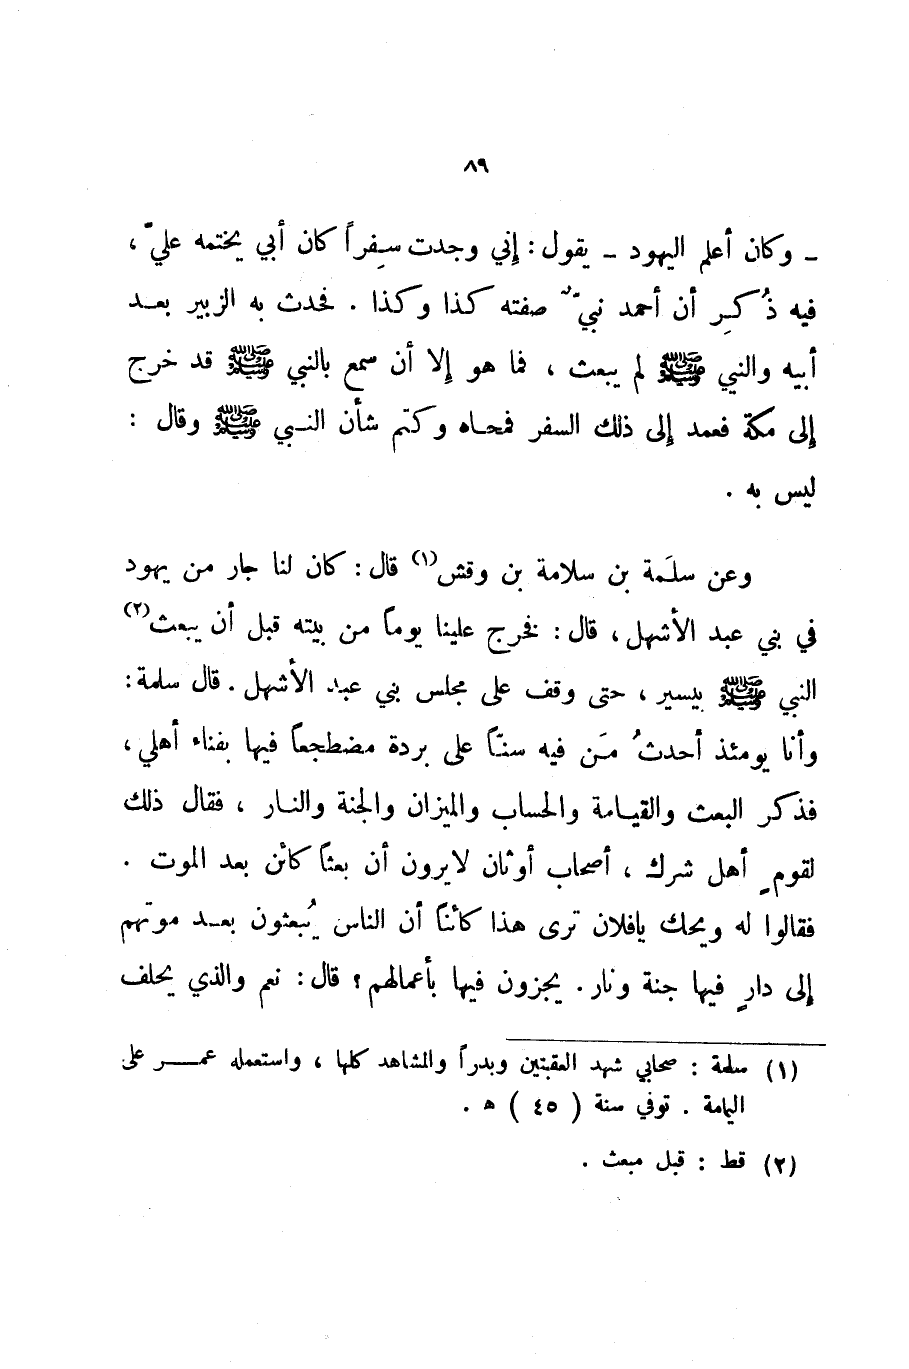 ٨٩
ـ وكان أعلم اليهود ـ يقول : إني وجدت سِفراً كان أبي يختمه عليّ ،
فيه ذُكِر أن أحمد نبيّ صفته كذا وكذا . فحدث به الزبير بعد
أبيه والنبي ﷺ لم يبعث ، فما هو إلا أن سمع بالنبي ﷺ قد خرج
إلى مكة فعمد إلى ذلك السفر فمحاه وكتم شأن النبي ﷺ وقال :
ليس به .
وعن سلَمة بن سلامة بن وقش(١) قال : كان لنا جار من يهود
في بني عبد الأشهل ، قال : فخرج علينا يوماً من بيته قبل أن يبعث(٢)
النبي ﷺ بيسير ، حتى وقف على مجلس بني عبد الأشهل . قال سلمة :
وأنا يومئذ أحدثُ مَن فيه سنّاً على بردة مضطجعاً فيها بفناء أهلي ،
فذكر البعث والقيامة والحساب والميزان والجنة والنار ، فقال ذلك
لقومٍ أهل شرك ، أصحاب أوثان لايرون أن بعثاً كائن بعد الموت .
فقالوا له ويحك يافلان ترى هذا كائناً أن الناس يُبعثون بعد موتهم
إلى دارٍ فيها جنة ونار . يجزون فيها بأعمالهم ؟ قال : نعم والذي يحلف
(١) سلمة : صحابي شهد العقبتين وبدراً والمشاهد كلها ، واستعمله عمر على
اليمامة . توفي سنة ( ٤٥ ) ه .
(٢) قط : قبل مبعث .